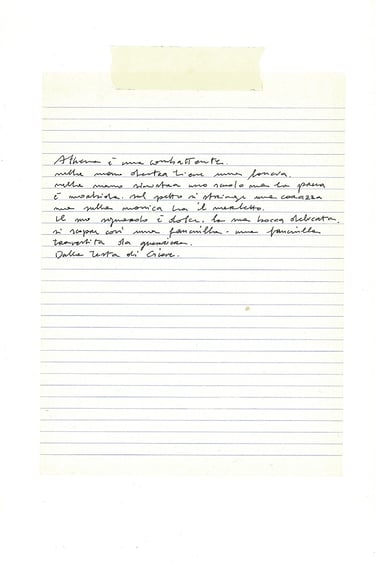 Athena è una combattente.
nella mano destra tiene una lancia.
nella mano sinistra uno scudo ma la
è morbida. sul petto si stringe una corazza
ma sulla manica ha il merletto.
il suo sguardo è dolce. la sua bocca delicata.
si scopre così una fanciulla - una fanciulla
travestita da guerriera.
Dalla testa di Giove.